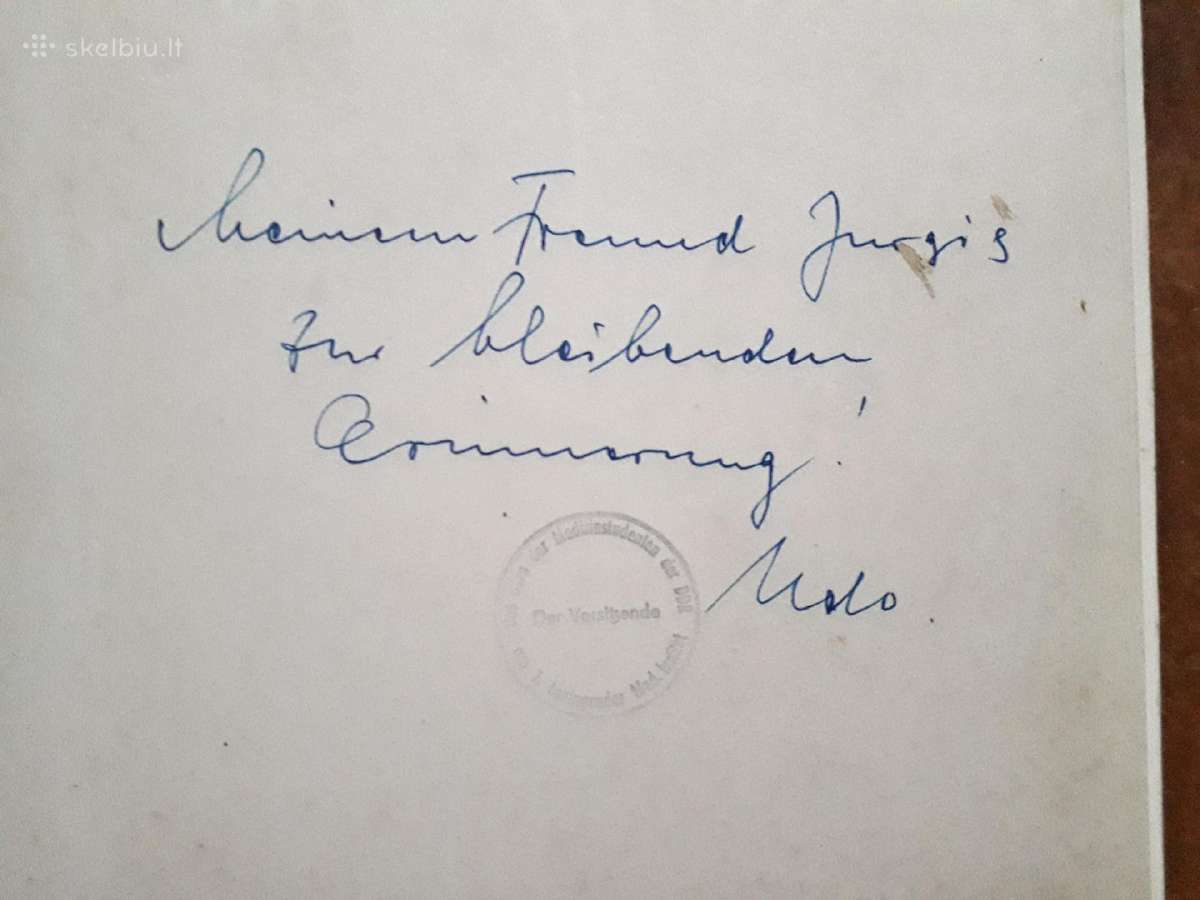 skelbiu.lt
Meinem Freund Jurgis
zur bleibenden
Erinnerung!
Udo.
der Medizinstudenten der DDR
Der Vorsitzende